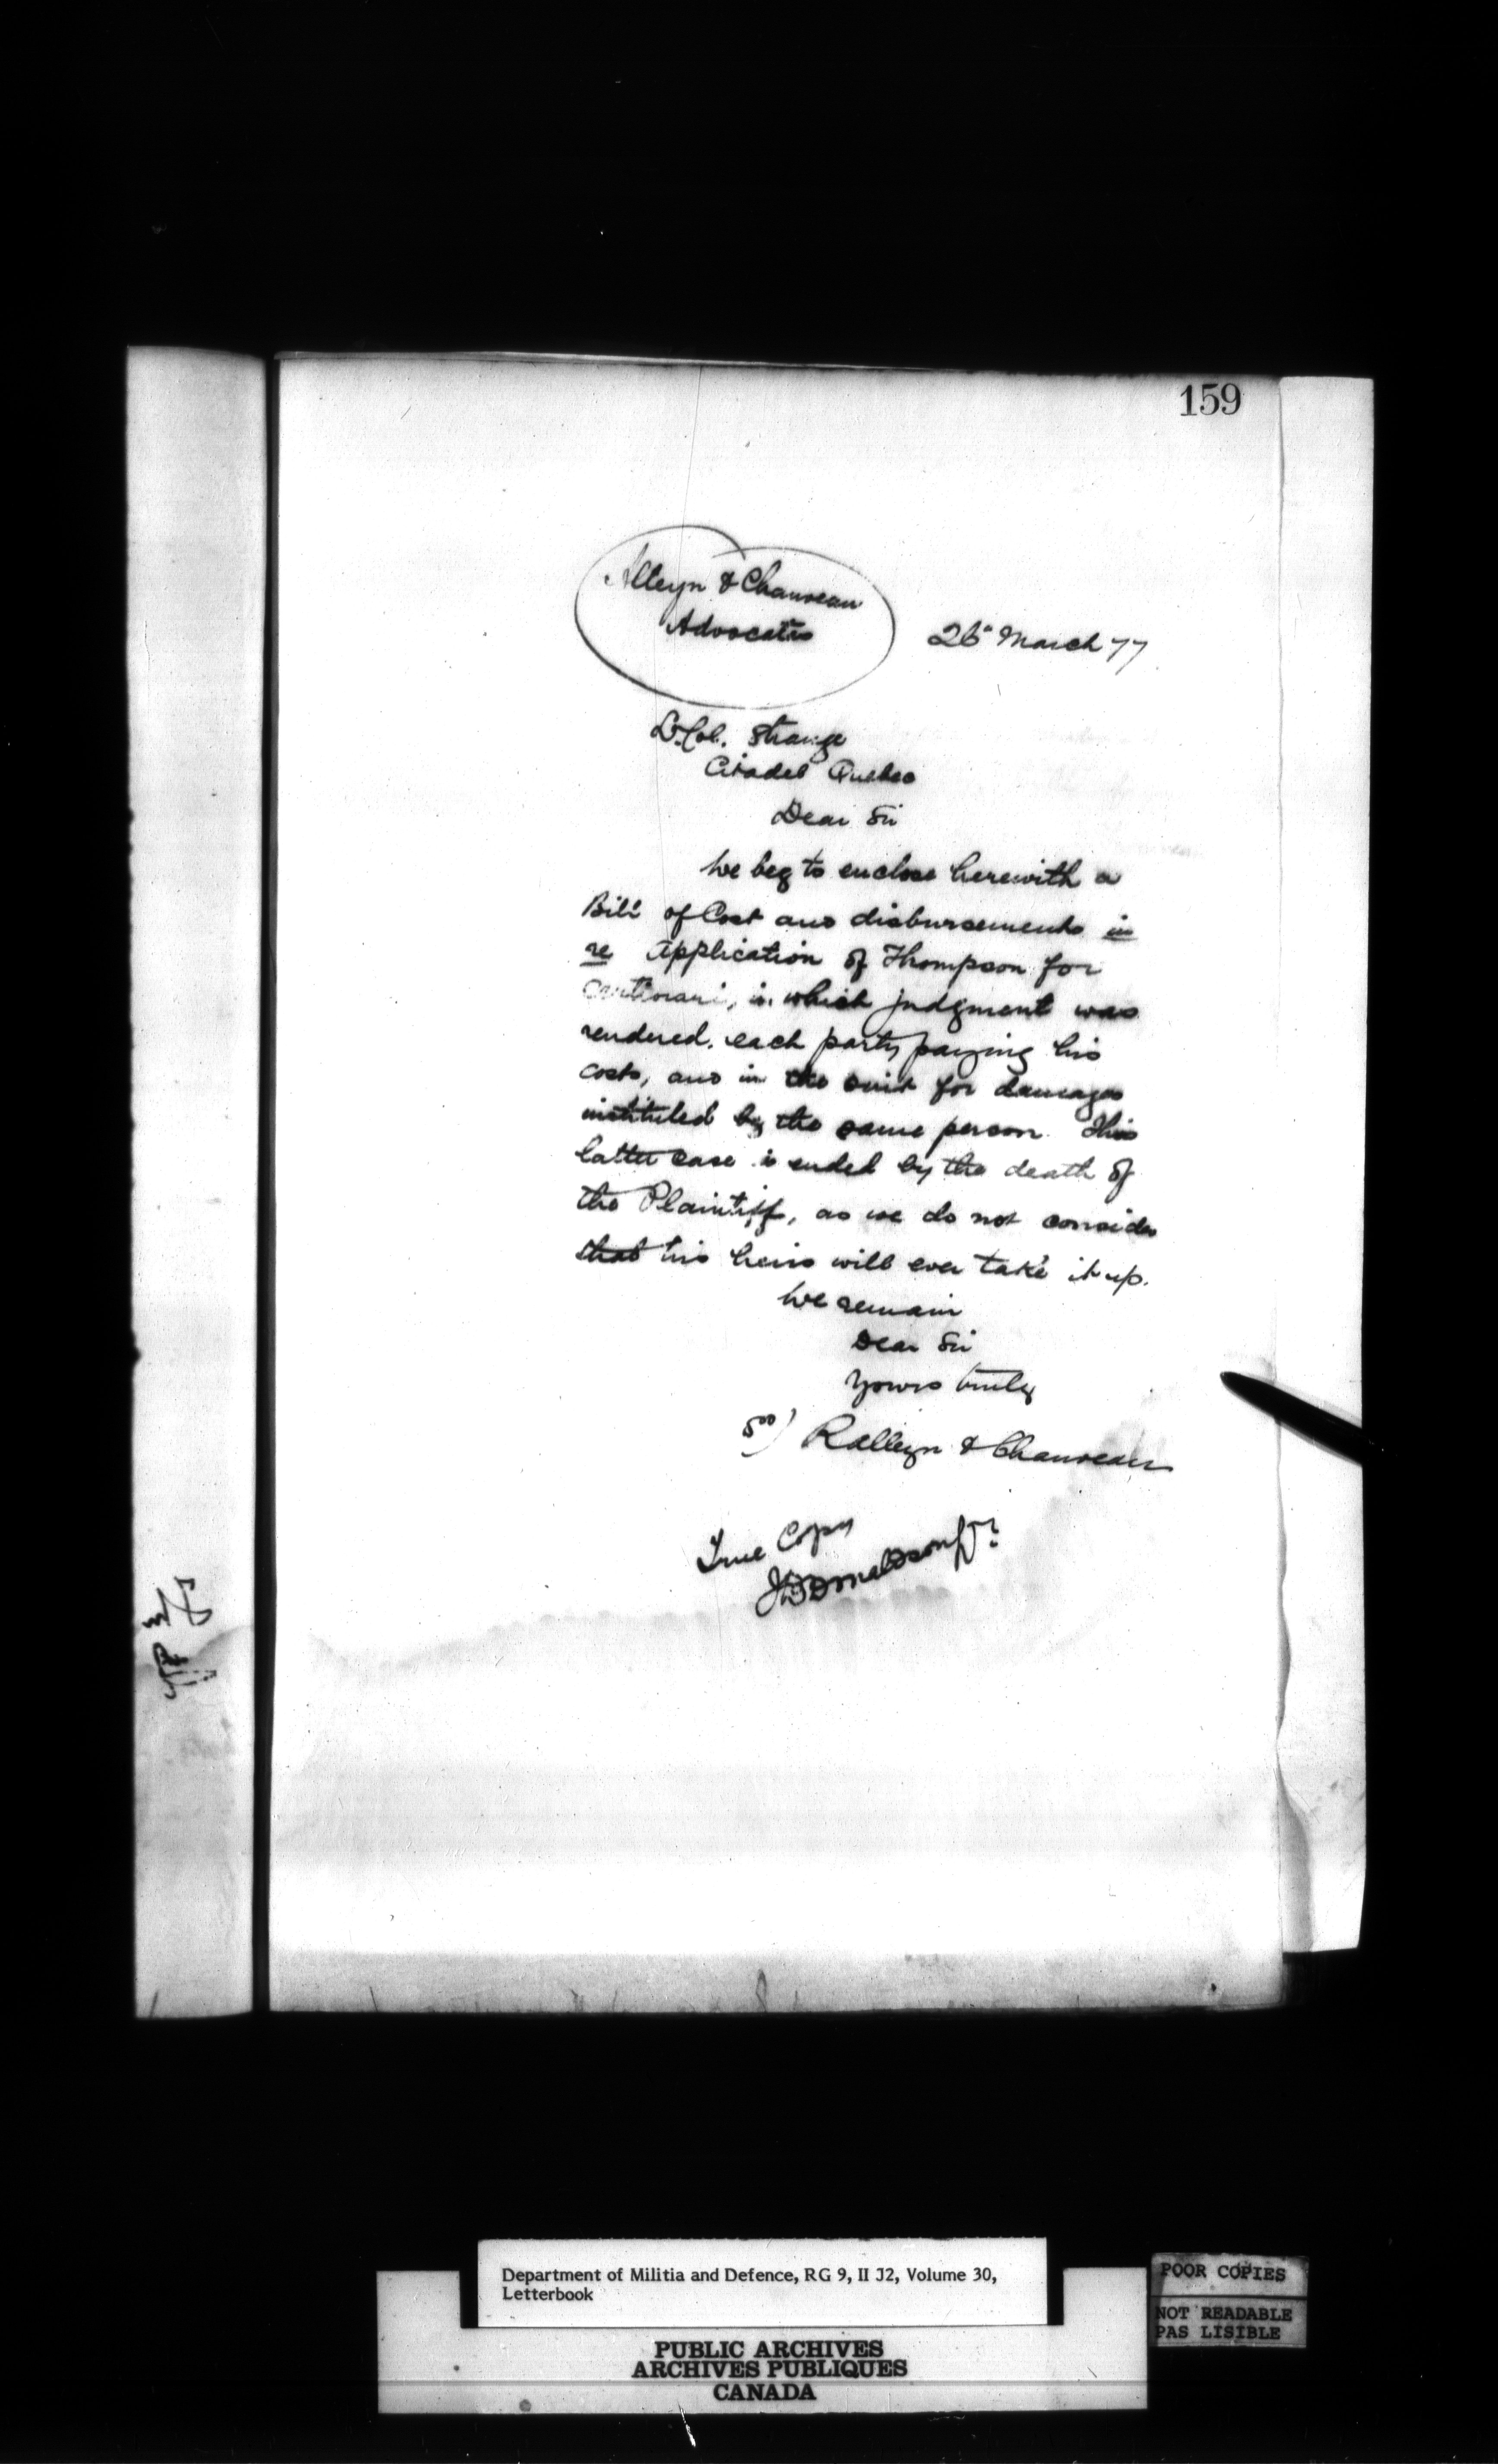 159
Alleyn & Chauveau
Advocates
26" March 77
Lt. Col. Strange
Citadel Quebec
Dear Sir
We beg to enclose herewith a
Bill of Cost and disbursements in
re Application of Thompson for
Certiorari, in which judgment was
rendered, each party paying his
costs, and in the suit for damages
instituted by the same person. This
latter case is ended by the death of
the Plaintiff, as we do not consider
that his heirs will ever take it up.
We remain
Dear Sir
Yours truly
Sd) R Alleyn & Chauveau
True Copy
JB Donaldson Lt.
Department of Militia and Defence, RG 9, II J2, Volume 30,
Letterbook
POOR COPIES
NOT READABLE
PAS LISIBLE
PUBLIC ARCHIVES
ARCHIVES PUBLIQUES
CANADA